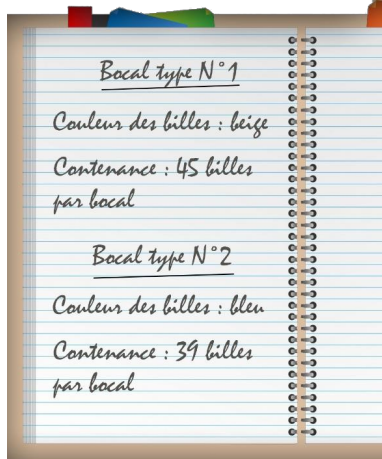 Bocal type N°1
Couleur des billes : beige
Contenance : 45 billes
par bocal
Bocal type N°2
Couleur des billes : bleu
Contenance : 39 billes
par bocal